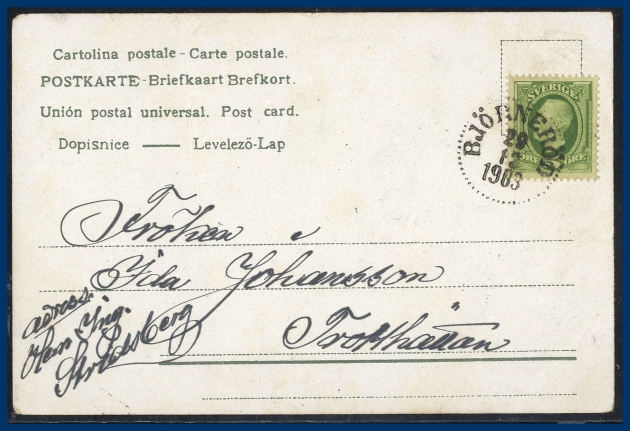 Cartolina postale - Carte postale.
POSTKARTE - Briefkaart Brefkort.
Unión postal universal. Post card.
Dopisnice — Levelező-Lap
SVERIGE
BJÖRNERÖD
29
12
1903
Fröken
Ida Johansson
Trollhättan
adress.
Herr Ing.
Stridsberg